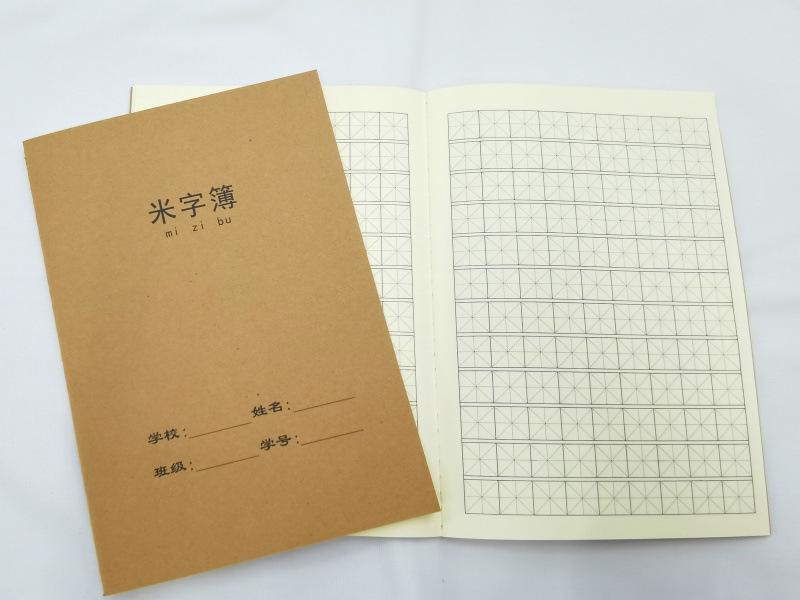 米字簿
mi zi bu
学校：________ 姓名：________
班级：________ 学号：________